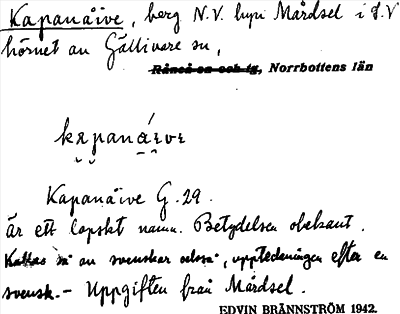 Kapanåive, berg N.V. byn Mårdsel i S.V
hörnet av Gällivare sn,
Råneå sn och tg, Norrbottens län
Kapanåive G. 29.
är ett lapskt namn. Betydelsen obekant.
Kallas så av svenskar också, uppteckningen efter en
svensk. - Uppgiften från Mårdsel.
EDVIN BRÄNNSTRÖM 1942.